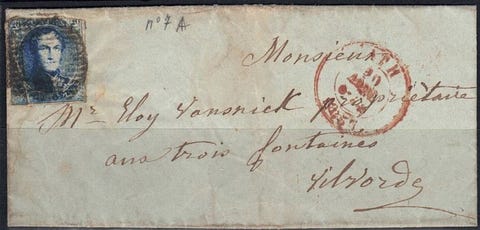 n° 7 A
Monsieur
ATH
Mr Eloy Vansnick propriétaire
aux trois fontaines
Vilvorde